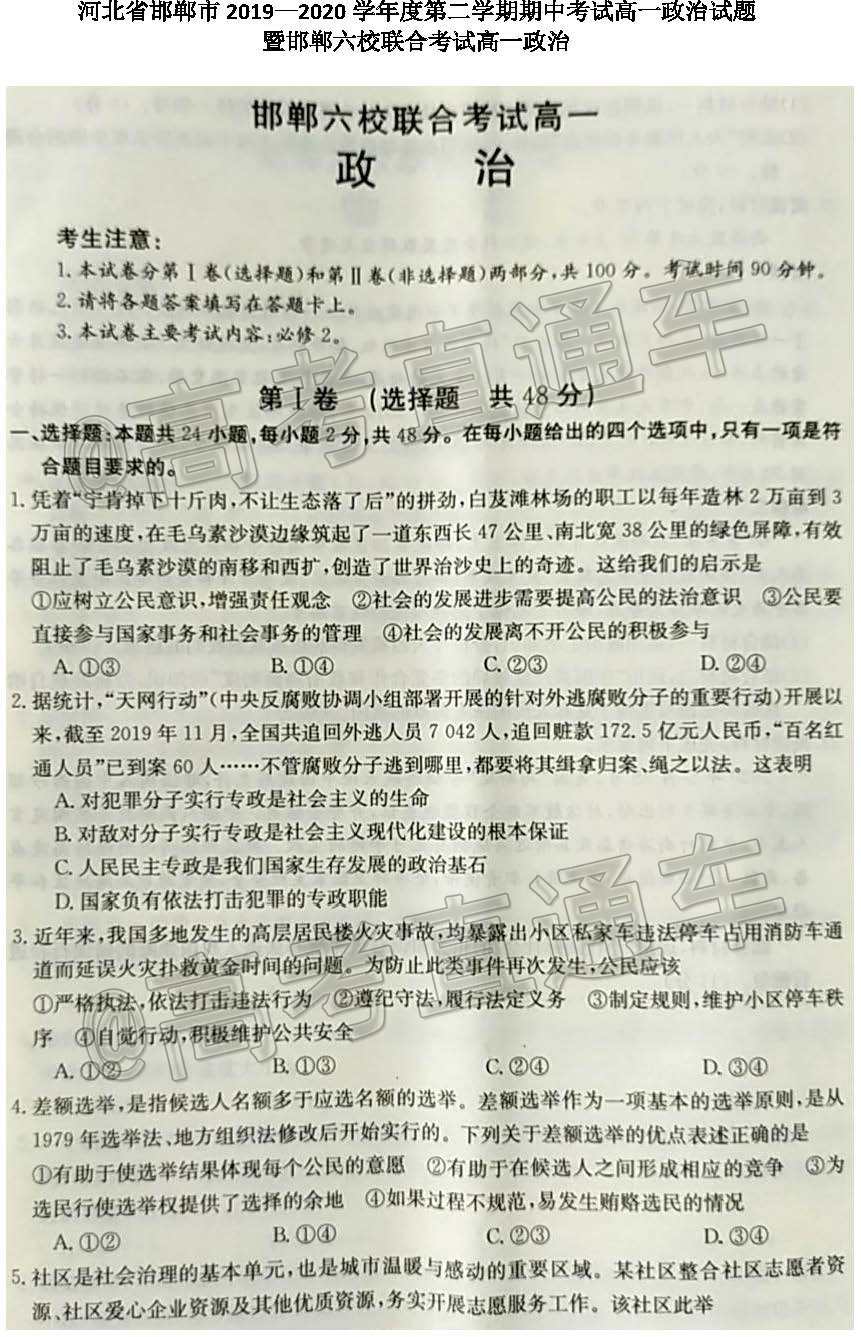 河北省邯郸市 2019—2020 学年度第二学期期中考试高一政治试题
暨邯郸六校联合考试高一政治
邯郸六校联合考试高一
政 治
考生注意:
1.本试卷分第Ⅰ卷(选择题)和第Ⅱ卷(非选择题)两部分,共 100 分。考试时间 90 分钟。
2.请将各题答案填写在答题卡上。
3.本试卷主要考试内容:必修 2。
第Ⅰ卷 (选择题 共 48 分)
一、选择题:本题共 24 小题,每小题 2 分,共 48 分。在每小题给出的四个选项中,只有一项是符
合题目要求的。
1.凭着“宁肯掉下十斤肉,不让生态落了后”的拼劲,白芨滩林场的职工以每年造林 2 万亩到 3
万亩的速度,在毛乌素沙漠边缘筑起了一道东西长 47 公里、南北宽 38 公里的绿色屏障,有效
阻止了毛乌素沙漠的南移和西扩,创造了世界治沙史上的奇迹。这给我们的启示是
①应树立公民意识,增强责任观念 ②社会的发展进步需要提高公民的法治意识 ③公民要
直接参与国家事务和社会事务的管理 ④社会的发展离不开公民的积极参与
A.①③ B.①④ C.②③ D.②④
2.据统计,“天网行动”(中央反腐败协调小组部署开展的针对外逃腐败分子的重要行动)开展以
来,截至 2019 年 11 月,全国共追回外逃人员 7 042 人,追回赃款 172.5 亿元人民币,“百名红
通人员”已到案 60 人……不管腐败分子逃到哪里,都要将其缉拿归案、绳之以法。这表明
A.对犯罪分子实行专政是社会主义的生命
B.对敌对分子实行专政是社会主义现代化建设的根本保证
C.人民民主专政是我们国家生存发展的政治基石
D.国家负有依法打击犯罪的专政职能
3.近年来,我国多地发生的高层居民楼火灾事故,均暴露出小区私家车违法停车占用消防车通
道而延误火灾扑救黄金时间的问题。为防止此类事件再次发生,公民应该
①严格执法,依法打击违法行为 ②遵纪守法,履行法定义务 ③制定规则,维护小区停车秩
序 ④自觉行动,积极维护公共安全
A.①② B.①③ C.②④ D.③④
4.差额选举,是指候选人名额多于应选名额的选举。差额选举作为一项基本的选举原则,是从
1979 年选举法、地方组织法修改后开始实行的。下列关于差额选举的优点表述正确的是
①有助于使选举结果体现每个公民的意愿 ②有助于在候选人之间形成相应的竞争 ③为
选民行使选举权提供了选择的余地 ④如果过程不规范,易发生贿赂选民的情况
A.①② B.①④ C.②③ D.③④
5.社区是社会治理的基本单元,也是城市温暖与感动的重要区域。某社区整合社区志愿者资
源、社区爱心企业资源及其他优质资源,务实开展志愿服务工作。该社区此举
@高考直通车
@高考直通车